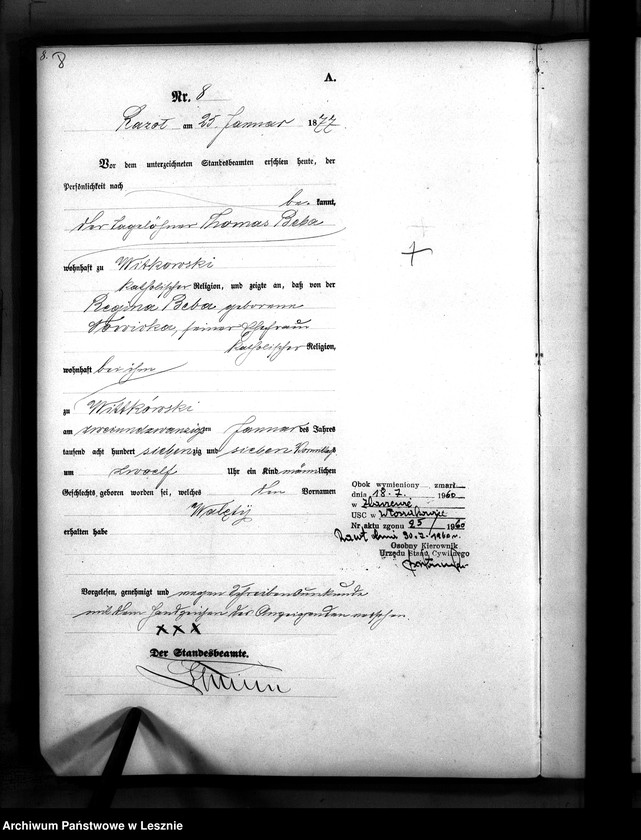 8.
8
A.
Nr. 8
Razot am 25. Januar 1877
Vor dem unterzeichneten Standesbeamten erschien heute, der
Persönlichkeit nach
be kannt,
der Tagelöhner Thomas Beba
wohnhaft zu Witkowski
katholischer Religion, und zeigte an, daß von der
Regina Beba geborene
seiner Ehefrau
katholischer Religion,
wohnhaft bei ihm
zu Wittkówski
am zweiundzwanzigsten Januar des Jahres
tausend acht hundert siebenzig und sieben Vormittags
um zwoelf Uhr ein Kind männlichen
Geschlechts geboren worden sei, welches den Vornamen
Walęty
erhalten habe
Vorgelesen, genehmigt und wegen Schreibensunkunde
mit dem Handzeichen des Anzeigenden versehen.
XXX
Der Standesbeamte.
Obok wymieniony zmarł
dnia 18.7. 1960
w
USC w
Nr aktu zgonu 25/1960
dnia 30.7.1960 r.
Osobny Kierownik
Urzędu Stanu Cywilnego
Archiwum Państwowe w Lesznie